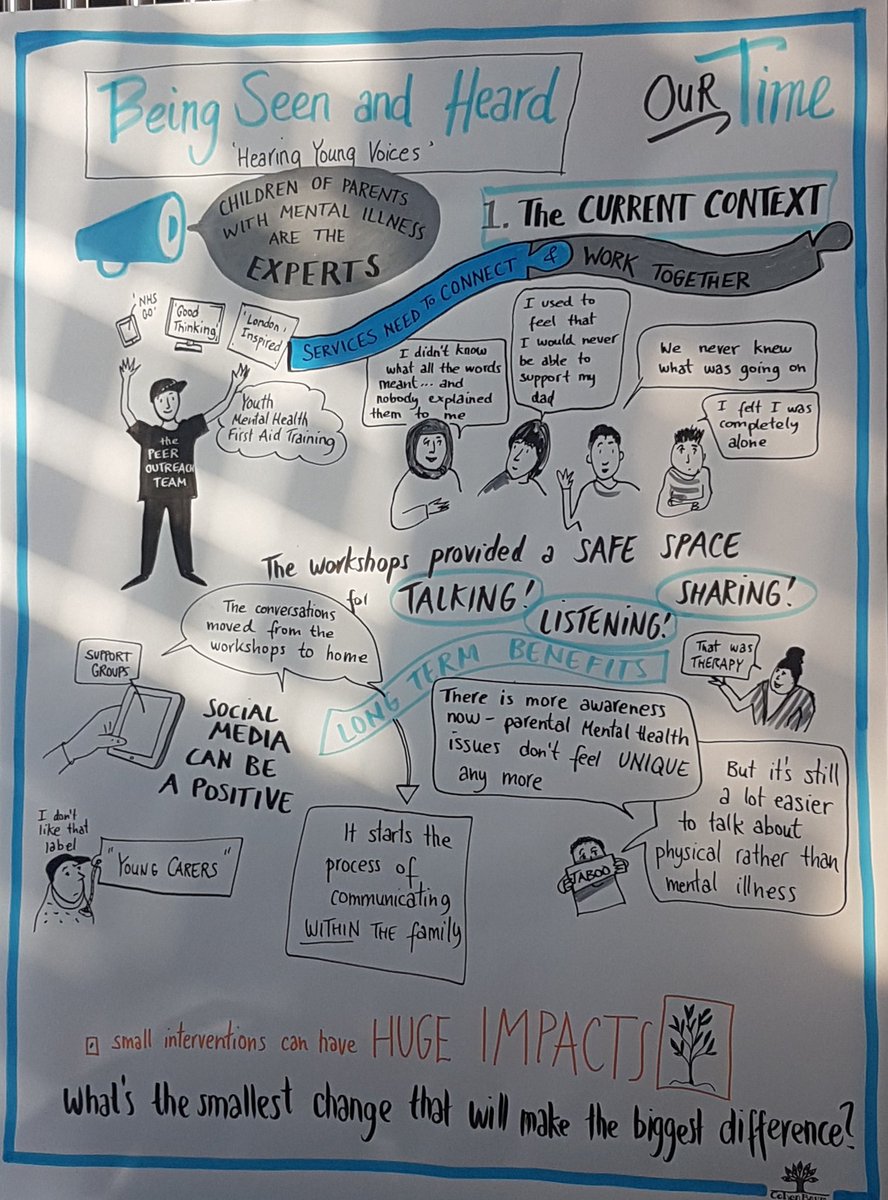 Being Seen and Heard
'Hearing Young Voices'
OUR Time
CHILDREN OF PARENTS
WITH MENTAL ILLNESS
ARE THE
EXPERTS
1. The CURRENT CONTEXT
SERVICES NEED TO CONNECT & WORK TOGETHER
'NHS
GO'
'Good
Thinking'
'London
Inspired'
Youth
Mental Health
First Aid Training
the
PEER
OUTREACH
TEAM
I didn't know
what all the words
meant... and
nobody explained
them to me
I used to
feel that
I would never
be able to
support my
dad
We never knew
what was going on
I felt I was
completely
alone
The workshops provided a SAFE SPACE
for TALKING!
LISTENING!
SHARING!
The conversations
moved from the
workshops to home
LONG TERM BENEFITS
That was
THERAPY
SUPPORT
GROUPS
SOCIAL
MEDIA
CAN BE
A POSITIVE
There is more awareness
now - parental Mental Health
issues don't feel UNIQUE
any more
But it's still
a lot easier
to talk about
physical rather than
mental illness
TABOO
I don't
like that
label
"YOUNG CARERS"
It starts the
process of
communicating
WITHIN THE family
small interventions can have HUGE IMPACTS
What's the smallest change that will make the biggest difference?